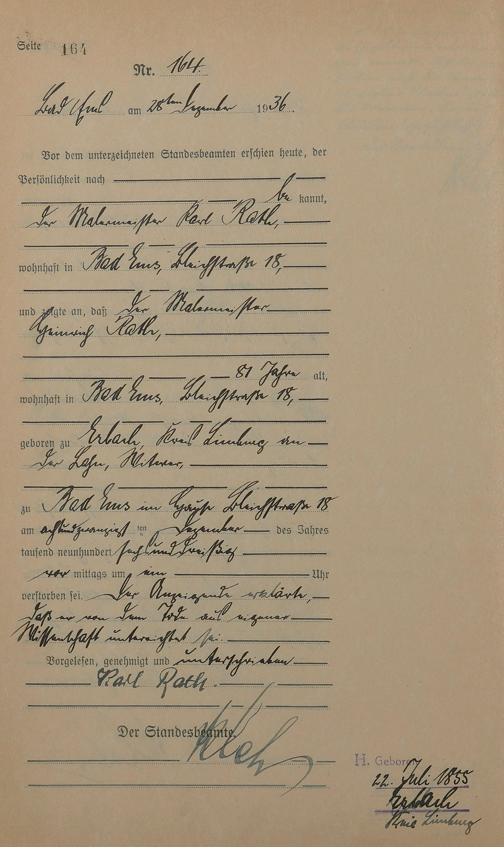 Seite 164
Nr. 164.
Bad Ems am 28ten Dezember 1936.
Vor dem unterzeichneten Standesbeamten erschien heute, der
Persönlichkeit nach
be kannt,
der Malermeister Karl Rath,
wohnhaft in Bad Ems, Bleichstraße 18,
und zeigte an, daß der Malermeister
Heinrich Rath,
81 Jahre alt,
wohnhaft in Bad Ems, Bleichstraße 18,
geboren zu Erbach, Kreis Limburg an
der Lahn, Witwer,
zu Bad Ems im Hause Bleichstraße 18
am achtundzwanzigsten Dezember des Jahres
tausend neunhundert sechsunddreißig
vor mittags um ein Uhr
verstorben sei. Der Anzeigende erklärte,
daß er von dem Tode aus eigener
Wissenschaft unterrichtet sei.
Vorgelesen, genehmigt und unterschrieben
Karl Rath.
Der Standesbeamte.
H. Gebore
22. Juli 1855
Erbach
Kreis Limburg